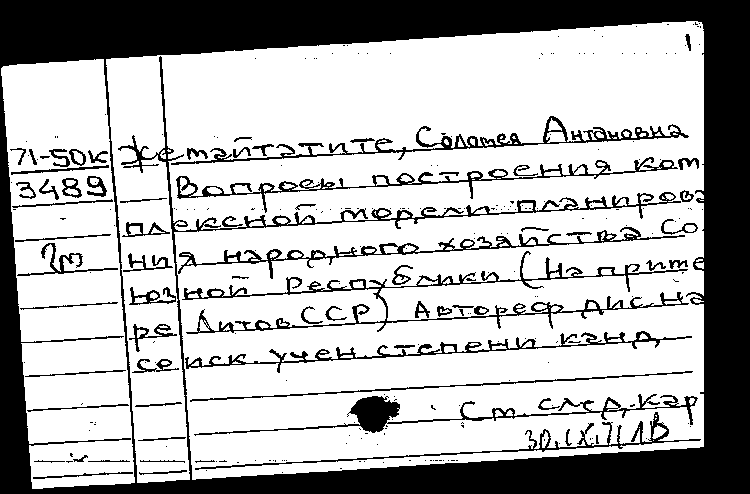 1
71-50к Жемайтатите, Соломея Антановна
3489 Вопросы построения ком
плексной модели планирова
2м ния народного хозяйства Со
юзной Республики (На приме
ре Литов. ССР) Автореф дис. на
соиск. учен. степени канд.
См. след. кар
30.IX.71 1В